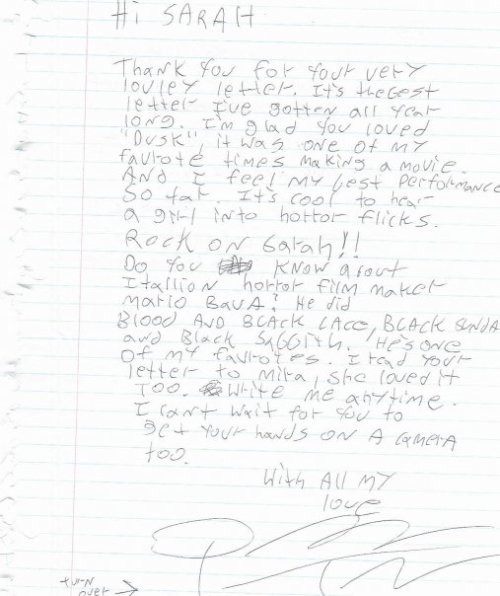 Hi SARAH
Thank you for your very
lovley letter. It's the best
letter I've gotten all year
long. I'm glad you loved
"Dusk", it was one of my
favrote times making a movie.
And I feel my best performance
so far. It's cool to hear
a girl into horror flicks.
Rock on Sarah!!
Do you know about
Itallion horror film maker
Mario Bava? He did
Blood And Black Lace, Black Sunda
and Black Sabbith. He's one
of my favrotes. I read your
letter to Mira, she loved it
too. Write me anytime.
I can't wait for you to
get your hands on a camera
too.
With All My
love
turn
over →